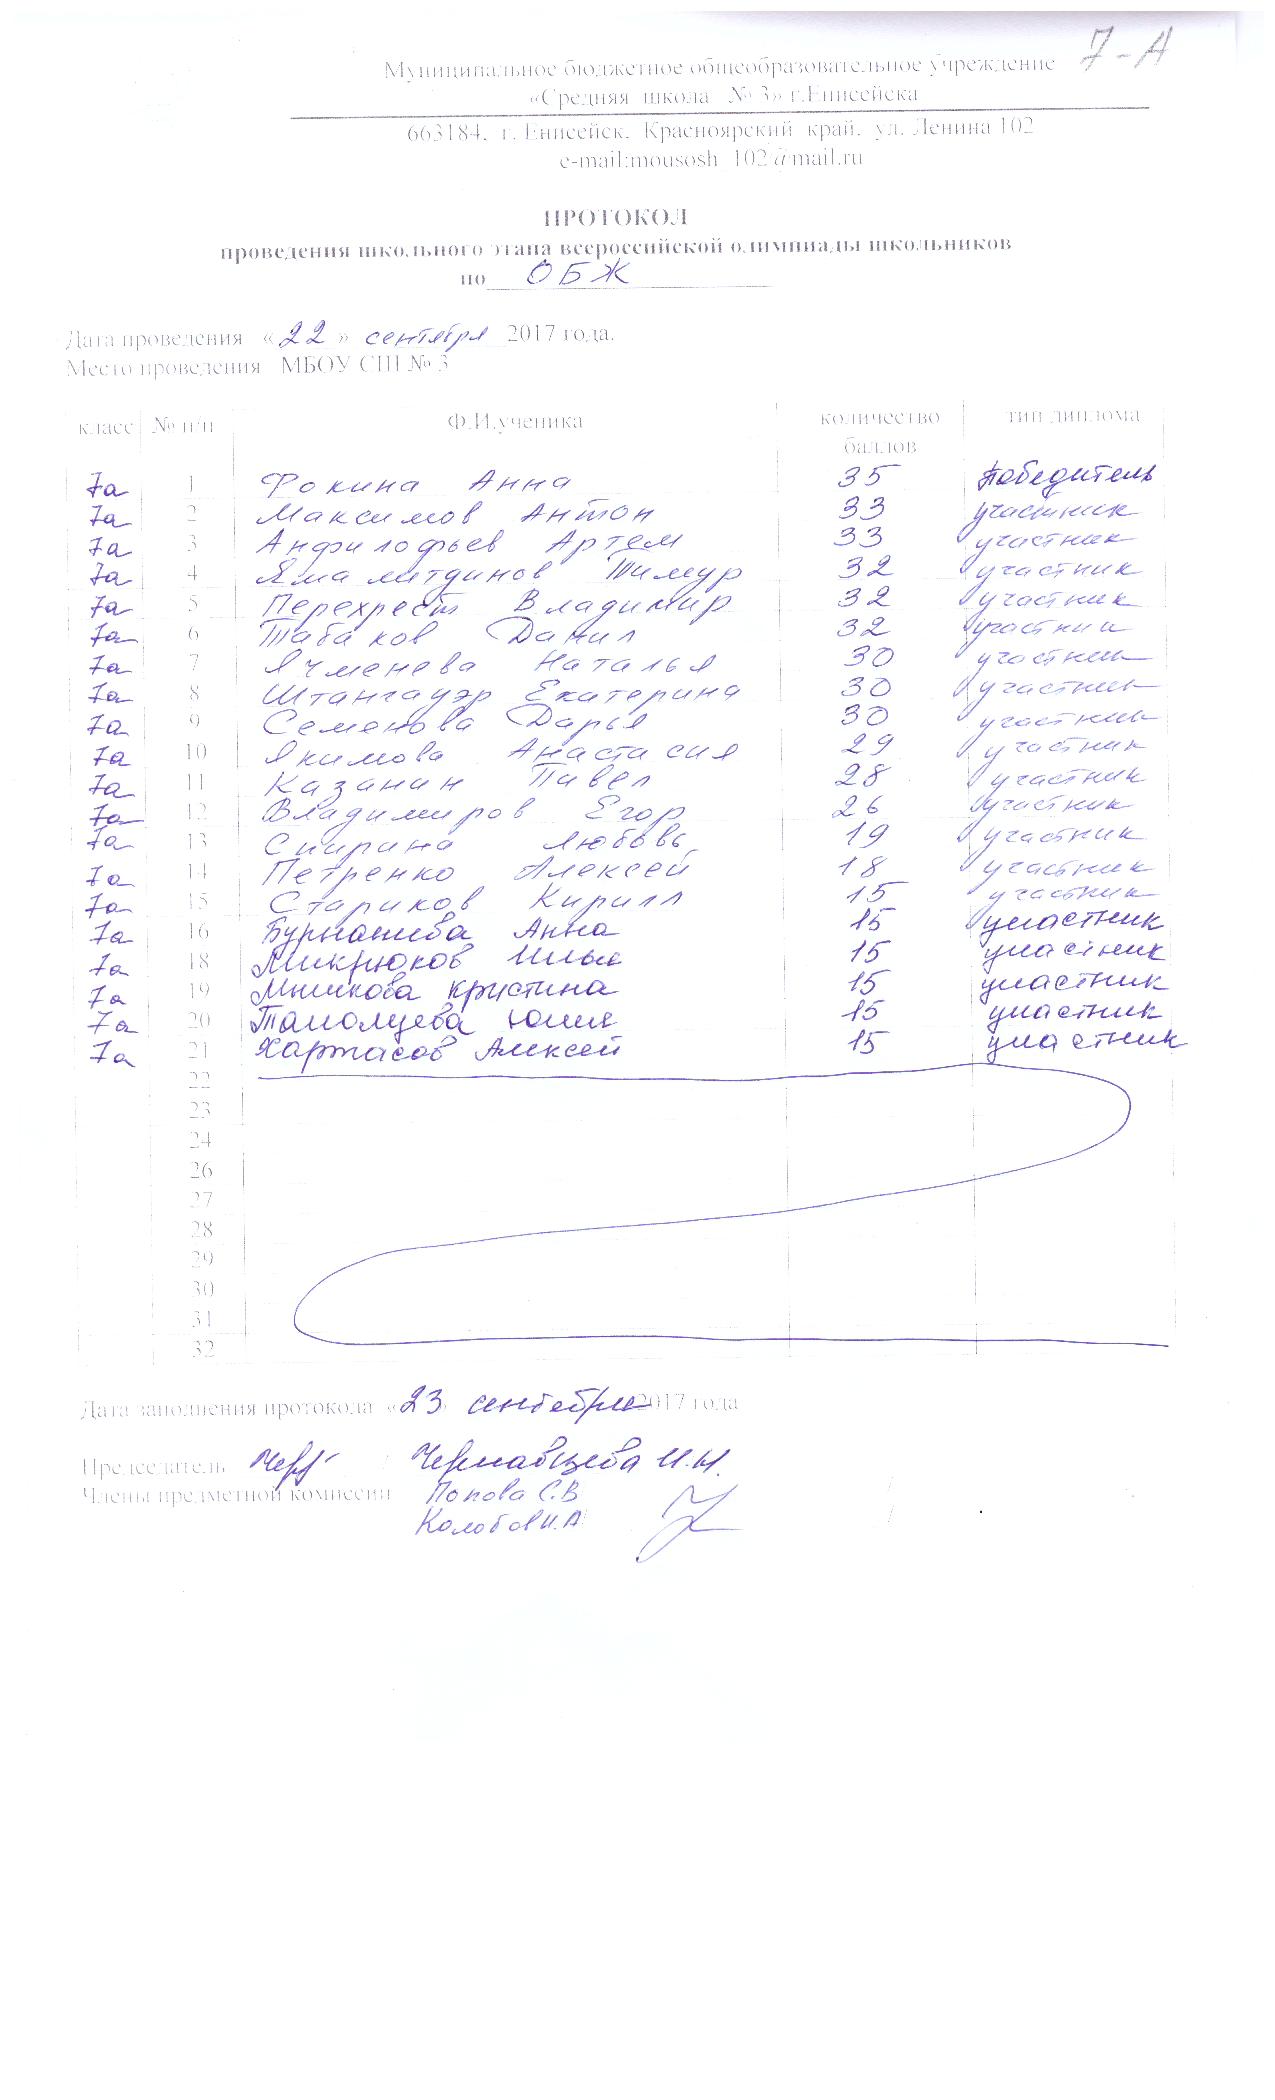 7-А
Муниципальное бюджетное общеобразовательное учреждение
«Средняя школа № 3» г.Енисейска
663184, г. Енисейск, Красноярский край, ул. Ленина 102
e-mail:mousosh_102@mail.ru
ПРОТОКОЛ
проведения школьного этапа всероссийской олимпиады школьников
по ОБЖ
Дата проведения «22» сентября 2017 года.
Место проведения МБОУ СШ № 3
класс № п/п Ф.И.ученика количество баллов тип диплома
7а 1 Фокина Анна 35 Победитель
7а 2 Максимов Антон 33 участник
7а 3 Анфилофьев Артем 33 участник
7а 4 Ямалитдинов Тимур 32 участник
7а 5 Перехрест Владимир 32 участник
7а 6 Табаков Данил 32 участник
7а 7 Ячменева Наталья 30 участник
7а 8 Штангауэр Екатерина 30 участник
7а 9 Семенова Дарья 30 участник
7а 10 Якимова Анастасия 29 участник
7а 11 Казанин Павел 28 участник
7а 12 Владимиров Егор 26 участник
7а 13 Спирина Любовь 19 участник
7а 14 Петренко Алексей 18 участник
7а 15 Стариков Кирилл 15 участник
7а 16 Бурнашева Анна 15 участник
7а 18 Микрюков Илья 15 участник
7а 19 Мышкова Кристина 15 участник
7а 20 Юлия 15 участник
7а 21 Хартасов Алексей 15 участник
22
23
24
26
27
28
29
30
31
32
Дата заполнения протокола «23 сентября 2017 года
Председатель Чернавцева И.И.
Члены предметной комиссии Попова С.В
Колобов И.А